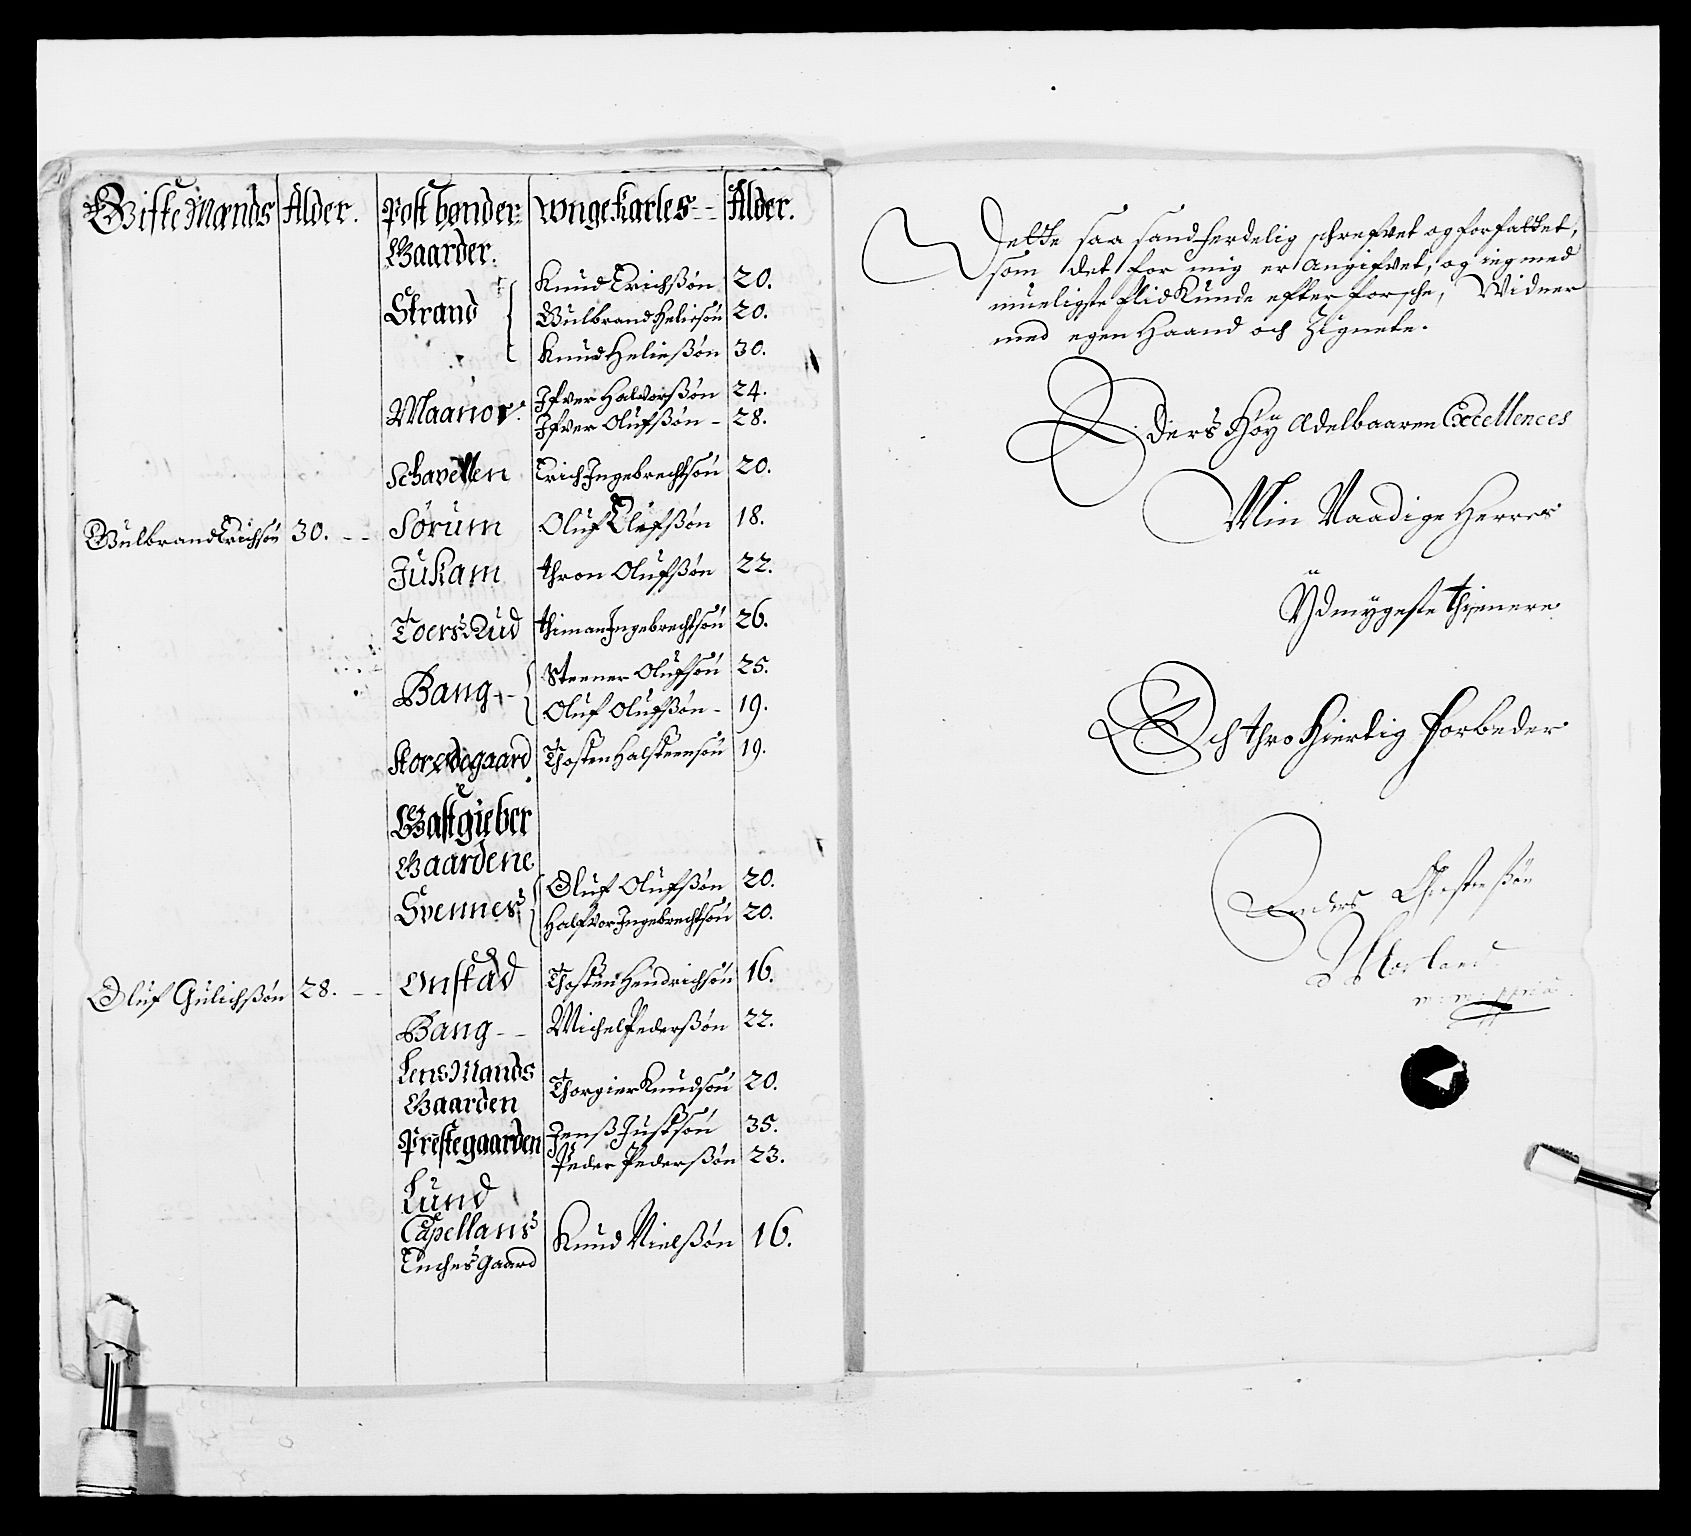 Gifte Mænds Alder. Post bønder: Wnge Karles -- Alder.
Gaarder.
Knud Erichsøn 20.
Strand Gulbrand Heliesøn 20.
Knud Heliesøn 30.
Maanor. Ifver Halvorsøn 24.
Ifver Olufsøn - 28.
Schavellen Erich Ingebrechtsøn 20.
Gulbrand Erichsøn 30. -- Sørum Oluf Olufsøn 18.
Jukam thron Olufsøn 22.
ToersRud thiman Ingebrechtsøn 26.
Bang - Steener Olufsøn 25.
Oluf Olufsøn - 19.
Thosten Halsteensøn 19.
Gastgieber
Gaardene
Svennes Oluf Olufsøn 20.
Halfvor Ingebrechtsøn 20.
Oluf Gulichsøn 28. -- Onstad Thosten Hendrichsøn 16.
Bang -- Michel Pedersøn 22.
LensMands
Gaarden Thorgier Knudsøn 20.
Prestegaarden Jenß Justsøn 35.
Peder Pedersøn 23.
Lund
Capellans Knud Nielßøn 16.
Enches Gaard
Dette saa sandferdelig schrefvet og forfattet,
som det for mig er angifvet, og ieg med
mueligste flid Kunde efter forsche, Widner
med egen Haand och Zignete.
Eders Høÿ Adelbaaren Excellences
Min Naadige Herres
Ÿdmygeste thienere
Och thro Hiertig forbeder
Anders Christensøn
Morland
m: m: ppria